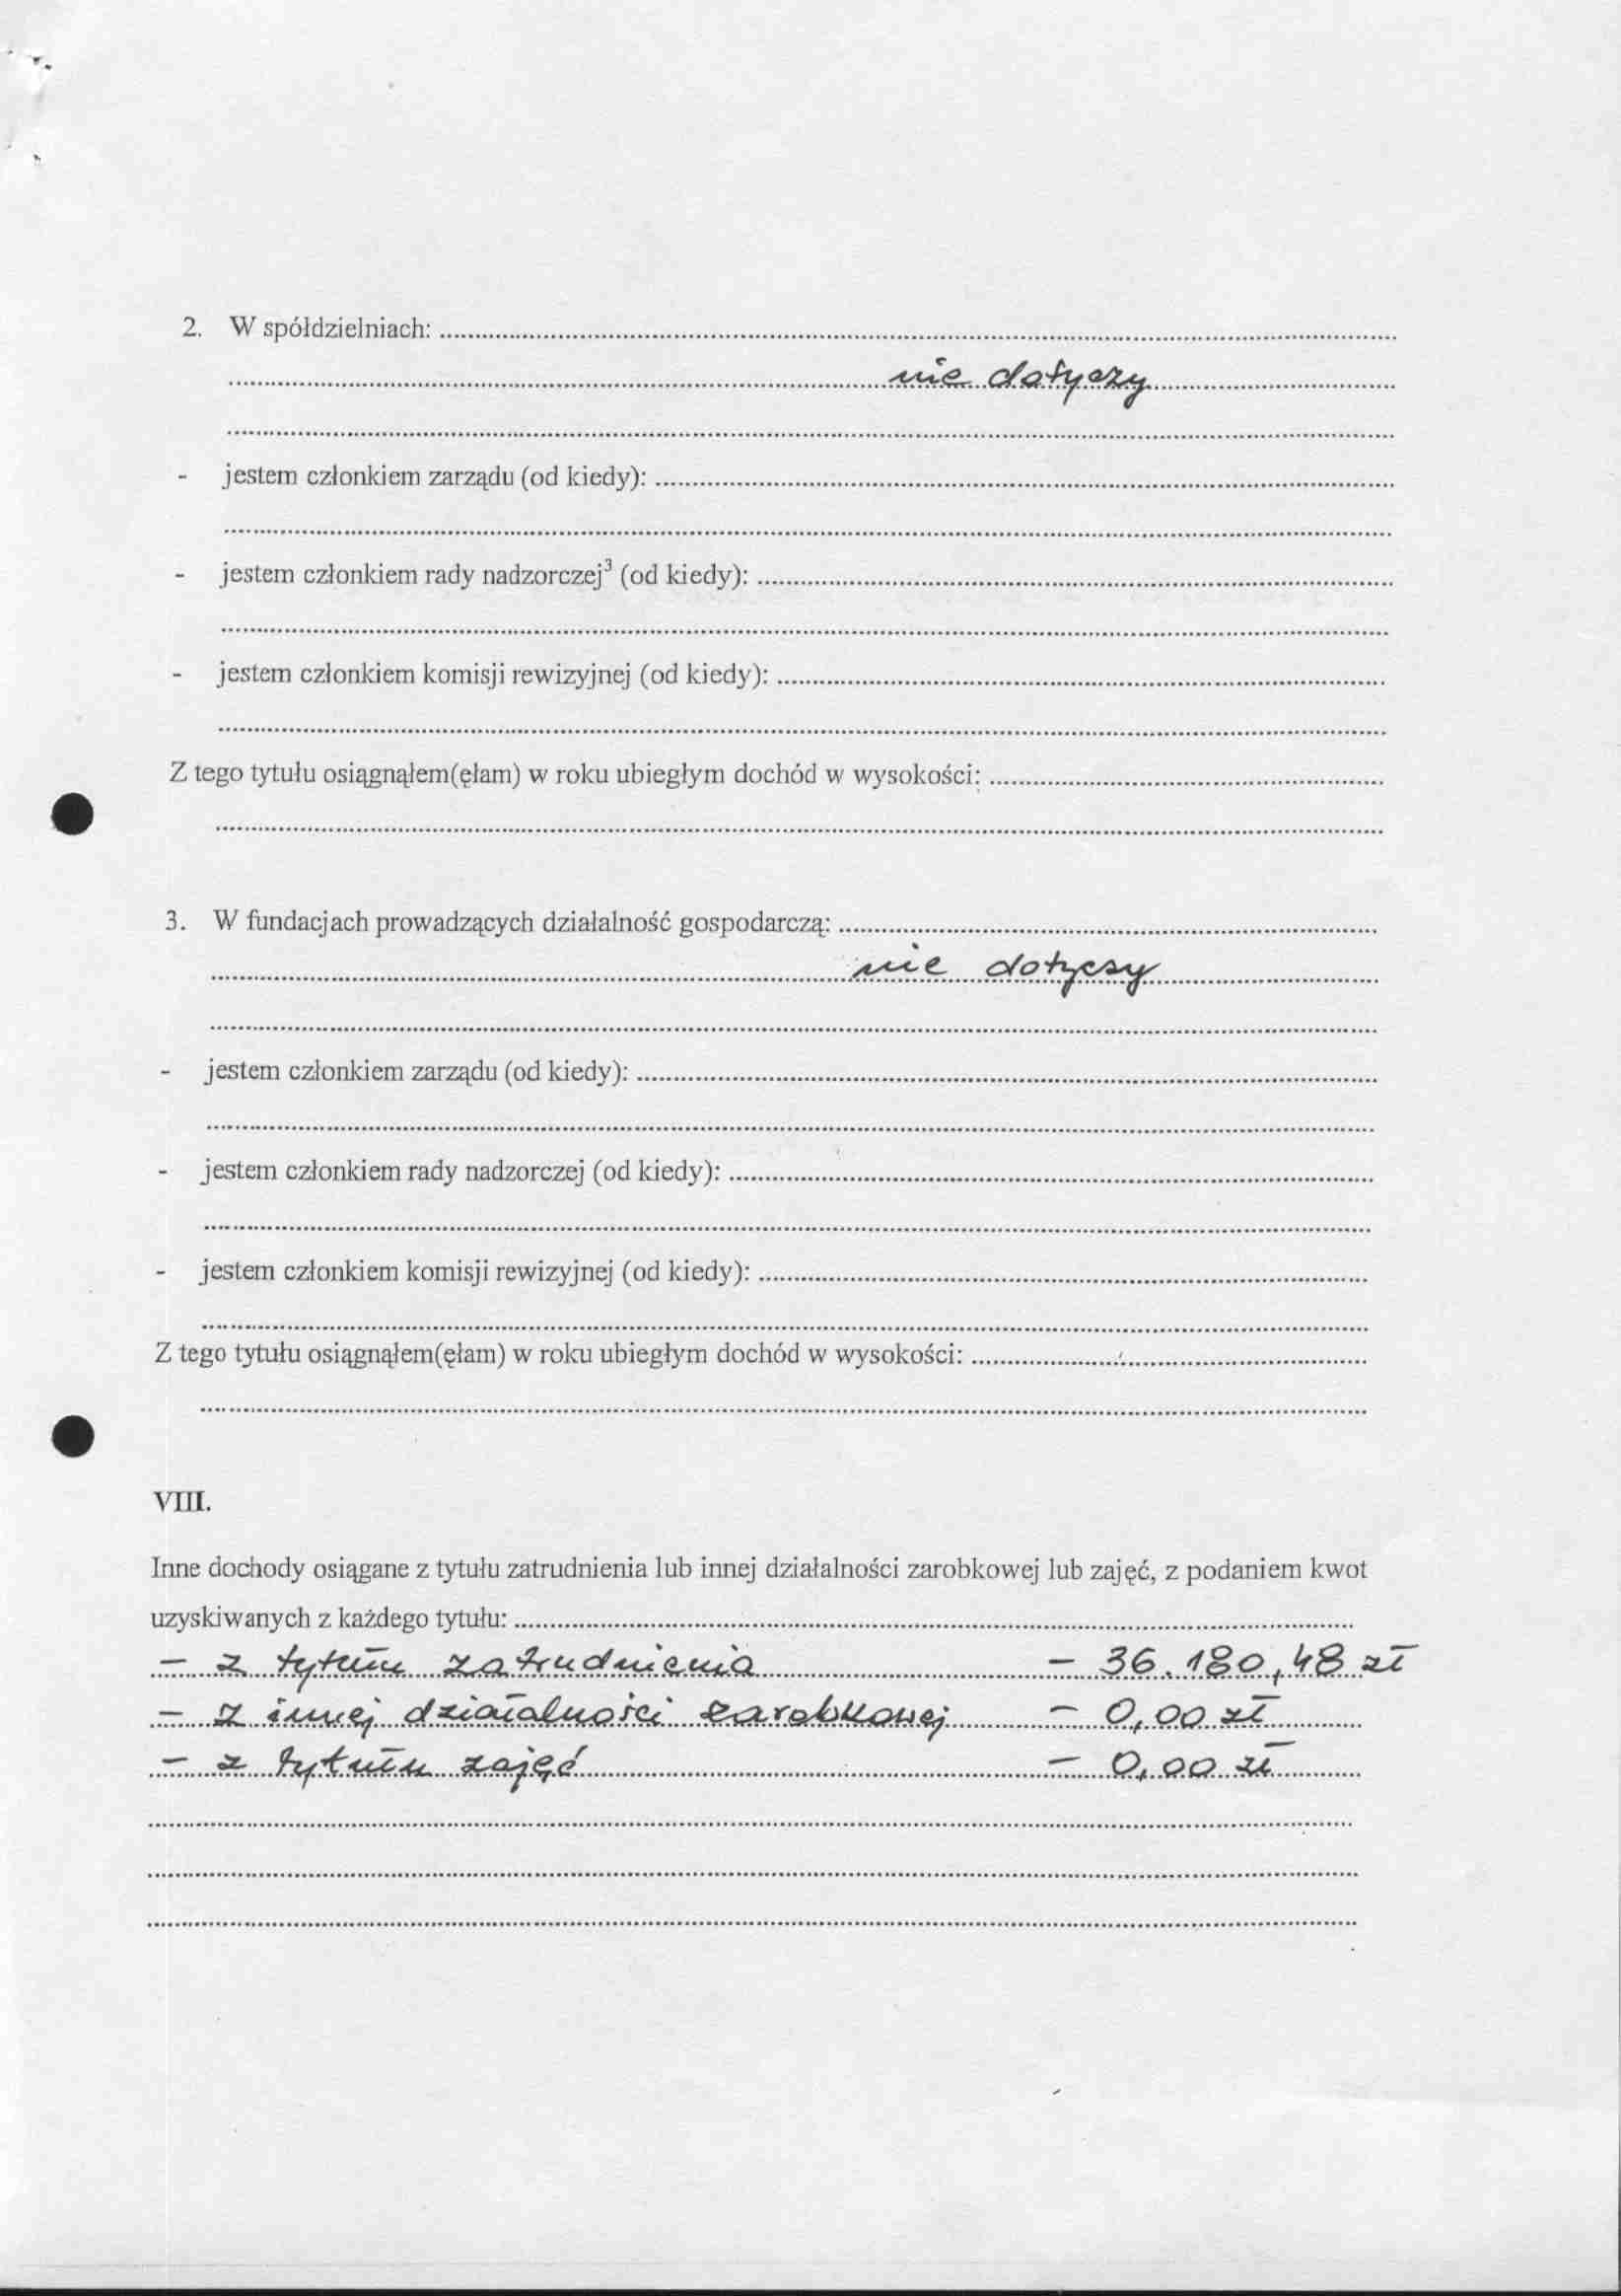 2. W spółdzielniach:
nie dotyczy
- jestem członkiem zarządu (od kiedy):
- jestem członkiem rady nadzorczej³ (od kiedy):
- jestem członkiem komisji rewizyjnej (od kiedy):
Z tego tytułu osiągnąłem(ęłam) w roku ubiegłym dochód w wysokości:
3. W fundacjach prowadzących działalność gospodarczą:
nie dotyczy
- jestem członkiem zarządu (od kiedy):
- jestem członkiem rady nadzorczej (od kiedy):
- jestem członkiem komisji rewizyjnej (od kiedy):
Z tego tytułu osiągnąłem(ęłam) w roku ubiegłym dochód w wysokości:
VIII.
Inne dochody osiągane z tytułu zatrudnienia lub innej działalności zarobkowej lub zajęć, z podaniem kwot
uzyskiwanych z każdego tytułu:
- z tytułu zatrudnienia - 36.180,48 zł
- z innej działalności zarobkowej - 0,00 zł
- z tytułu zajęć - 0,00 zł